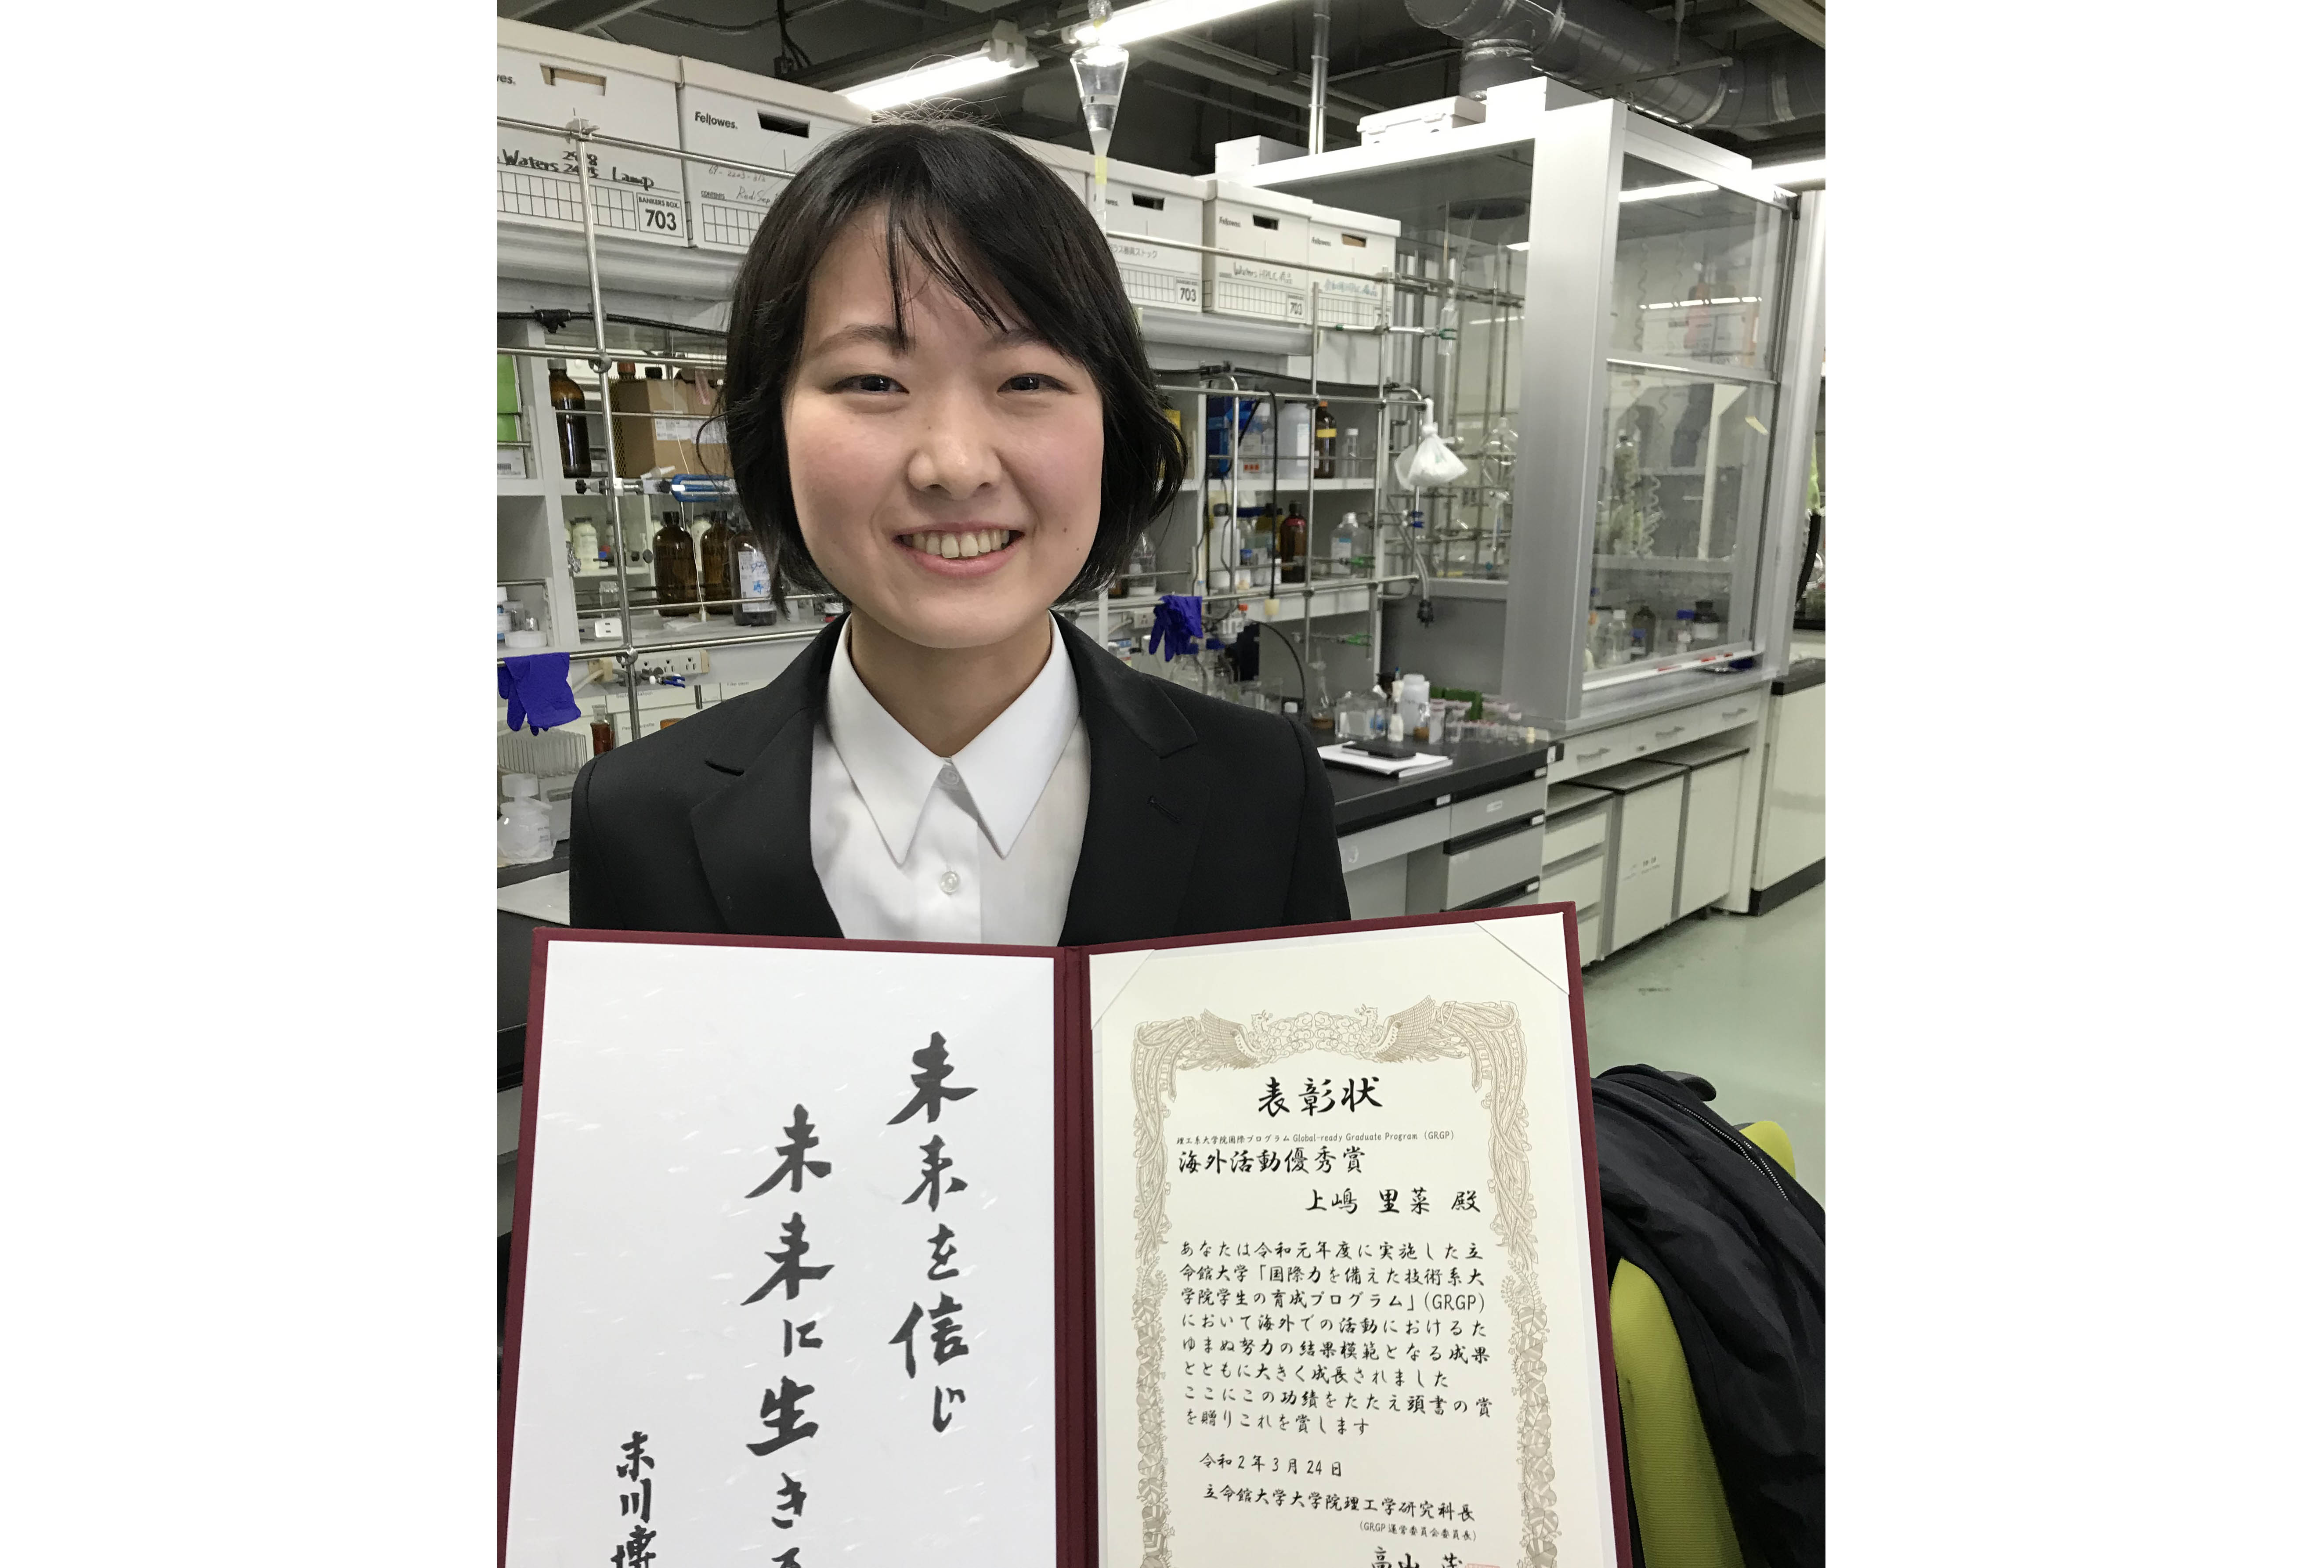 Fellowes.
Waters 2475 Lamp
BANKERS BOX
703
Fellowes.
CONTENTS
Fellowes.
703
Fellowes.
Waters HPLC
703
未来を信じ
未来に生きる
末川博
表彰状
理工系大学院国際プログラム Global-ready Graduate Program (GRGP)
海外活動優秀賞
上嶋 里菜 殿
あなたは令和元年度に実施した立
命館大学「国際力を備えた技術系大
学院学生の育成プログラム」(GRGP)
において海外での活動におけるた
ゆまぬ努力の結果模範となる成果
とともに大きく成長されました
ここにこの功績をたたえ頭書の賞
を贈りこれを賞します
令和2年3月24日
立命館大学大学院理工学研究科長
(GRGP 運営委員会委員長)
高山 茂